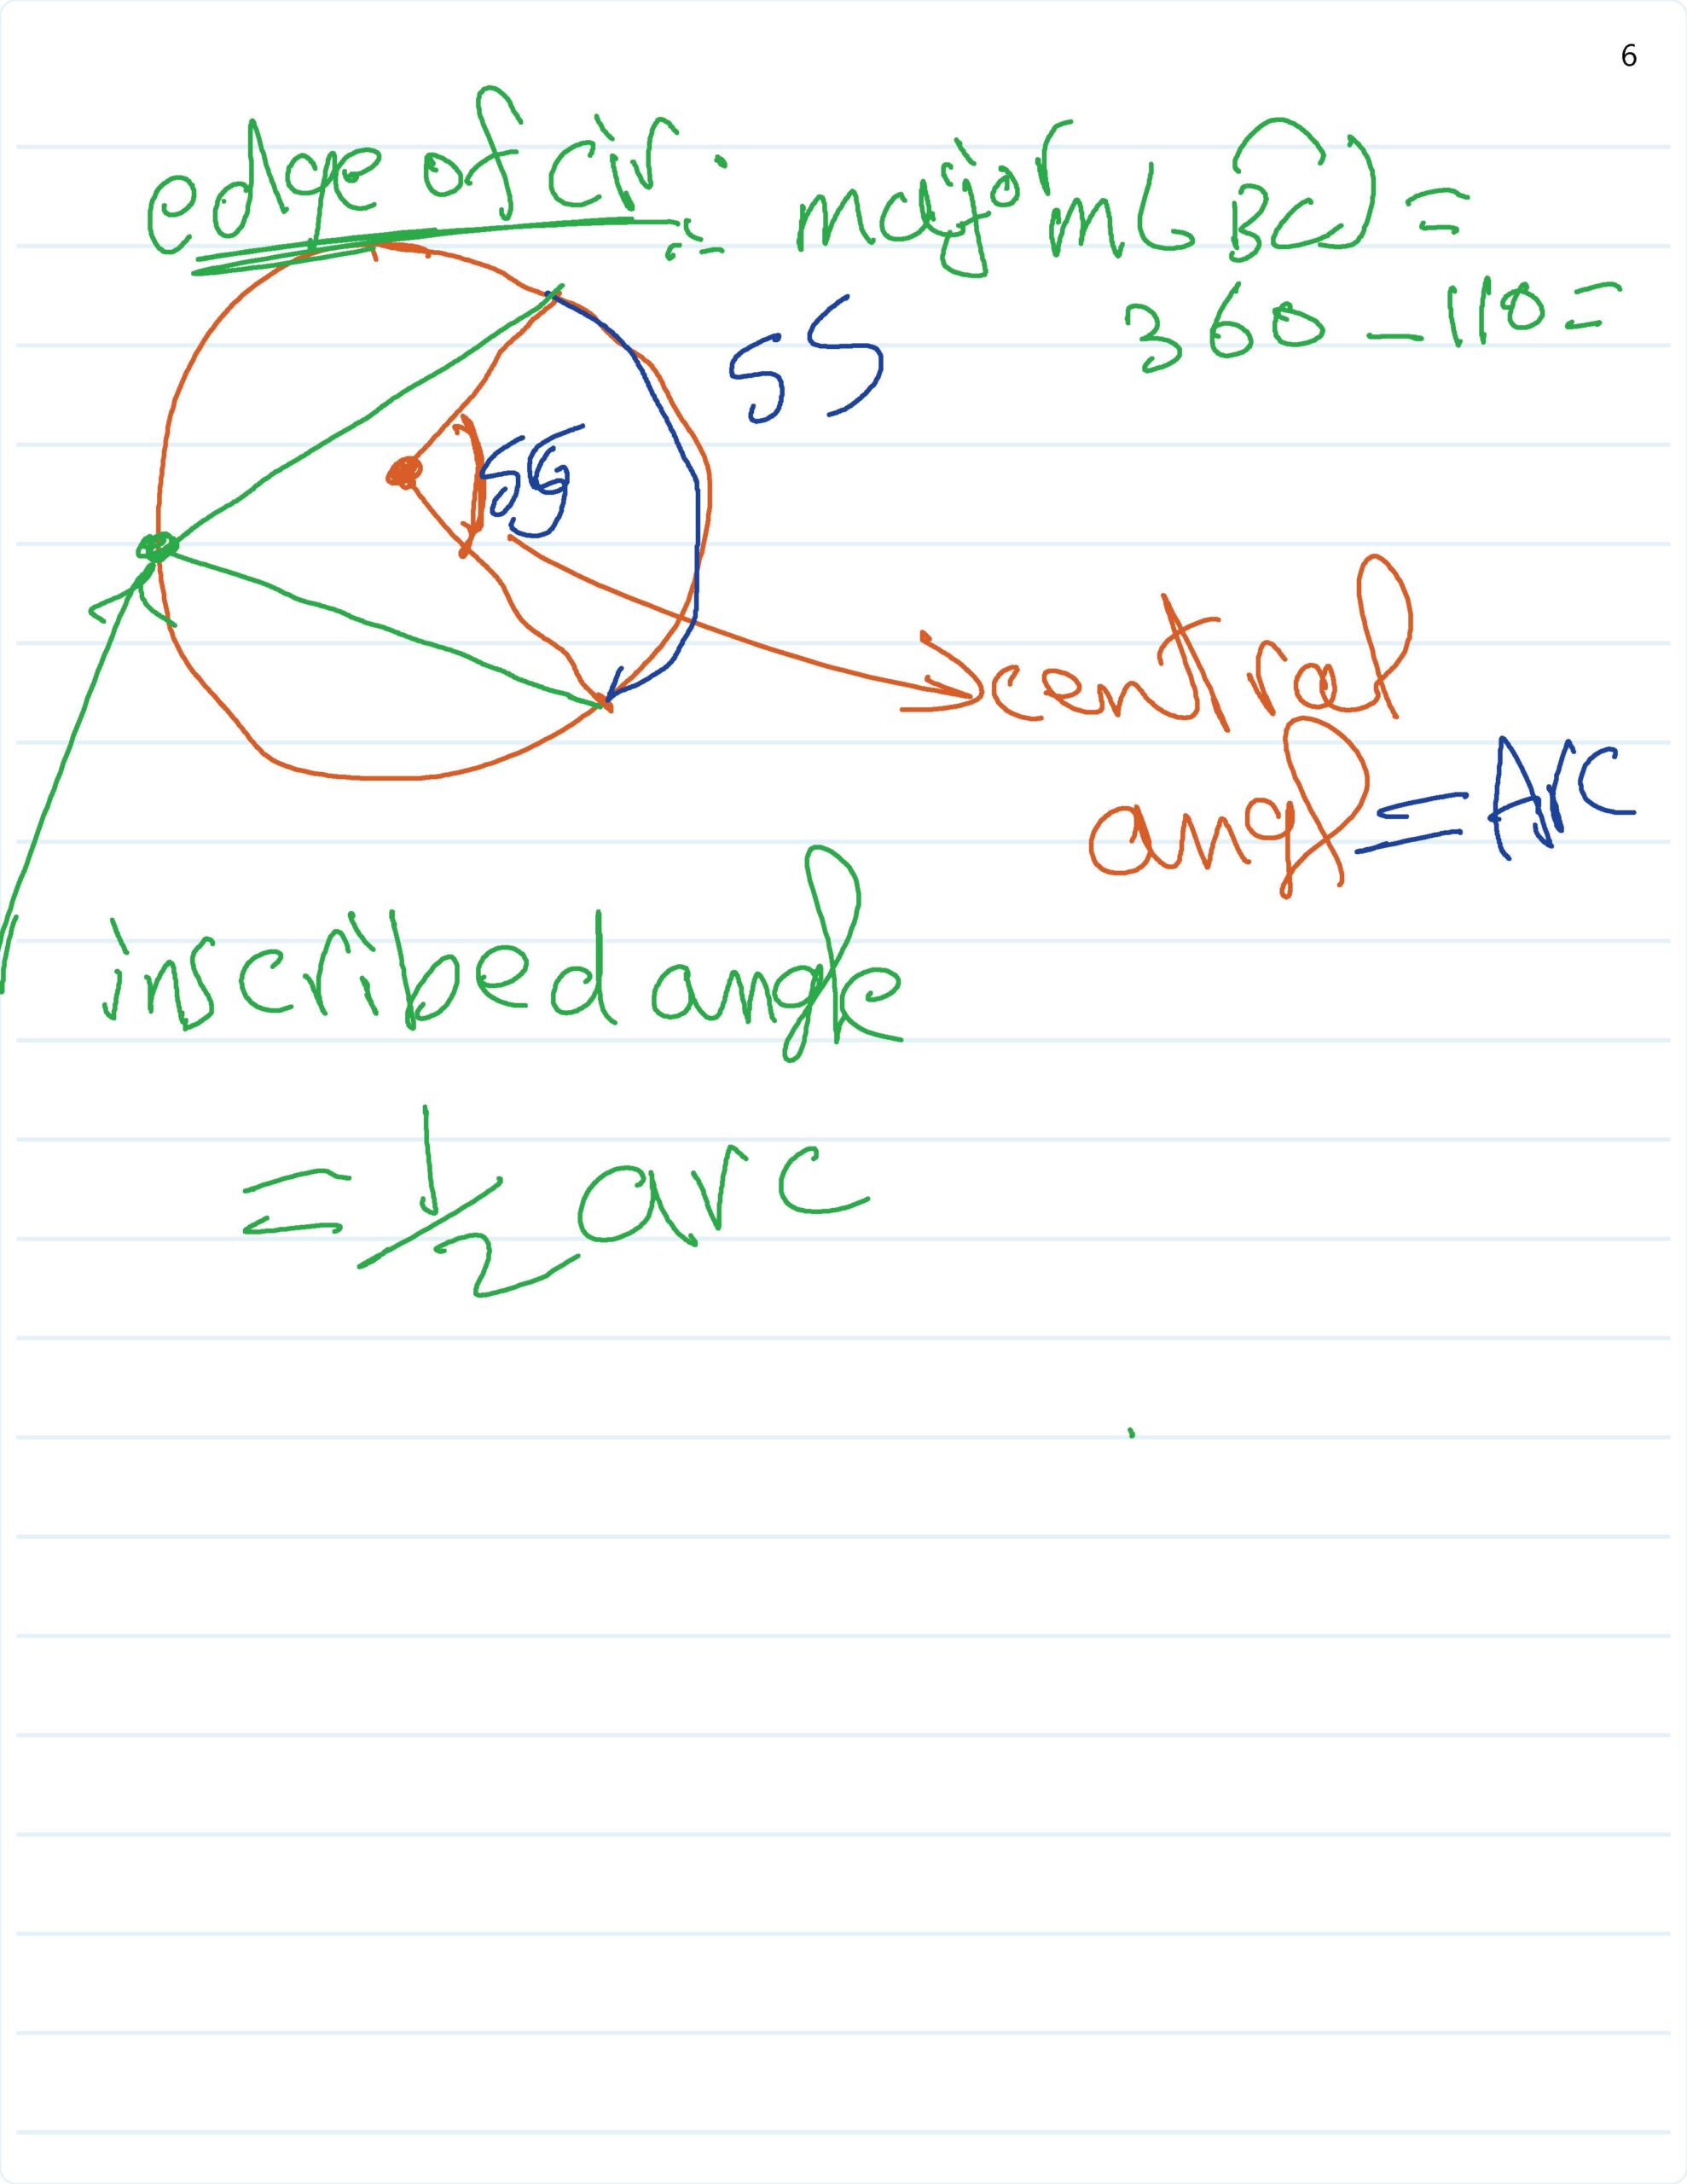 6
edge of cir.
major
360-110=
55
55
central
angl=Arc
inscribed angle
=1/2 arc